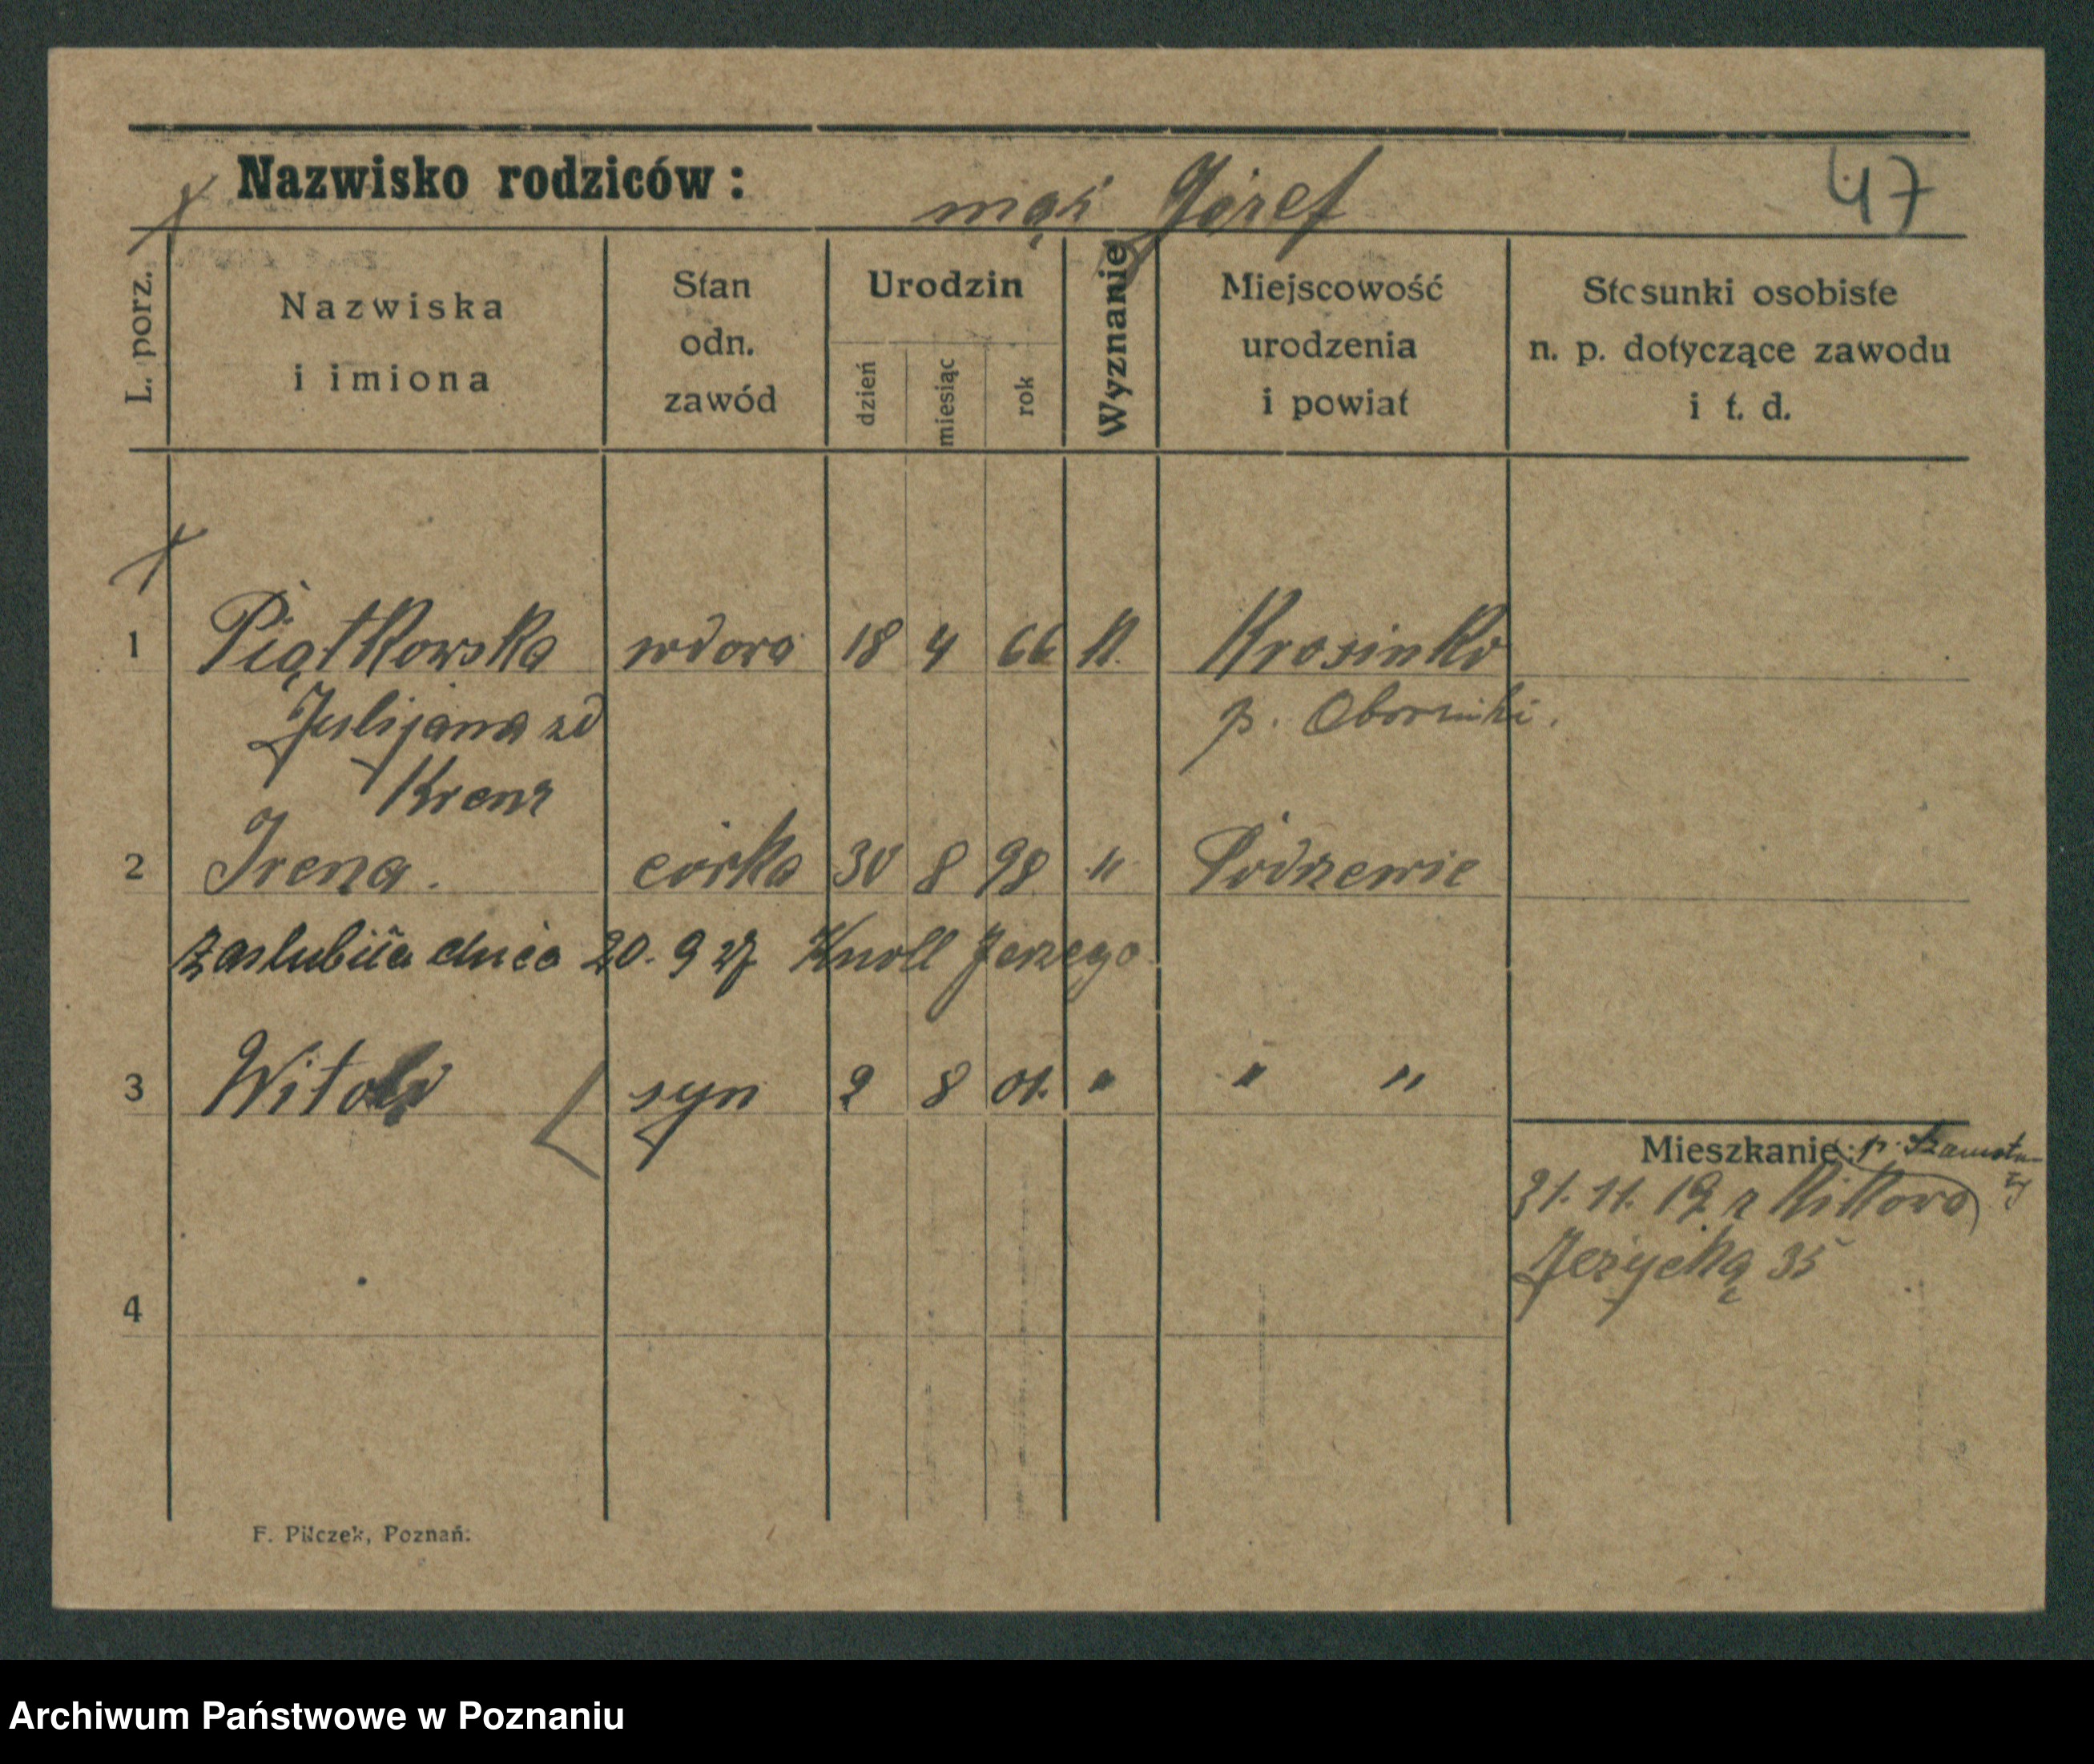 Nazwisko rodziców: mąż Józef 47
L. porz.
Nazwiska
i imiona
Stan
odn.
zawód
Urodzin
dzień
miesiąc
rok
Wyznanie
Miejscowość
urodzenia
i powiat
Stosunki osobiste
n. p. dotyczące zawodu
i t. d.
1 Piątkowska wdowa 18 4 66 K. Krosinko
Julijana zd p. Obornicki.
Krenz
2 Irena. córka 30 8 98 " Podrzewie
zaslubiła dnia 20. 9 27 Knoll Jerzego
3 Witold syn 2 8 01. " " "
Mieszkanie: p. Szamotu-
ły
21. 11. 19 z Kikowa
Jeżycka 35
4
F. Pilczek, Poznań.
Archiwum Państwowe w Poznaniu